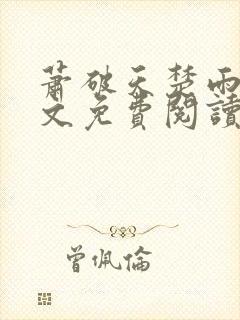 蕭破天楚雨
文免費閱讀
曾佩倫